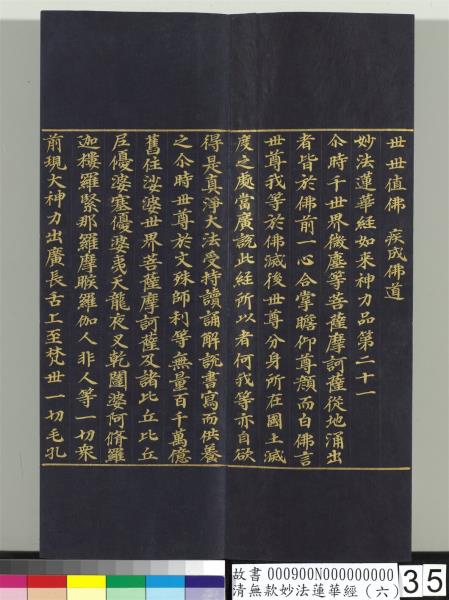 世世值佛　疾成佛道
妙法蓮華經如來神力品第二十一
尒時千世界微塵等菩薩摩訶薩從地涌出
者皆於佛前一心合掌瞻仰尊顏而白佛言
世尊我等於佛滅後世尊分身所在國土滅
度之處當廣說此經所以者何我等亦自欲
得是真淨大法受持讀誦解說書寫而供養
之尒時世尊於文殊師利等無量百千萬億
舊住娑婆世界菩薩摩訶薩及諸比丘比丘
尼優婆塞優婆夷天龍夜叉乾闥婆阿脩羅
迦樓羅緊那羅摩睺羅伽人非人等一切衆
前現大神力出廣長舌上至梵世一切毛孔
故書 000900N000000000
清無款妙法蓮華經（六）
35